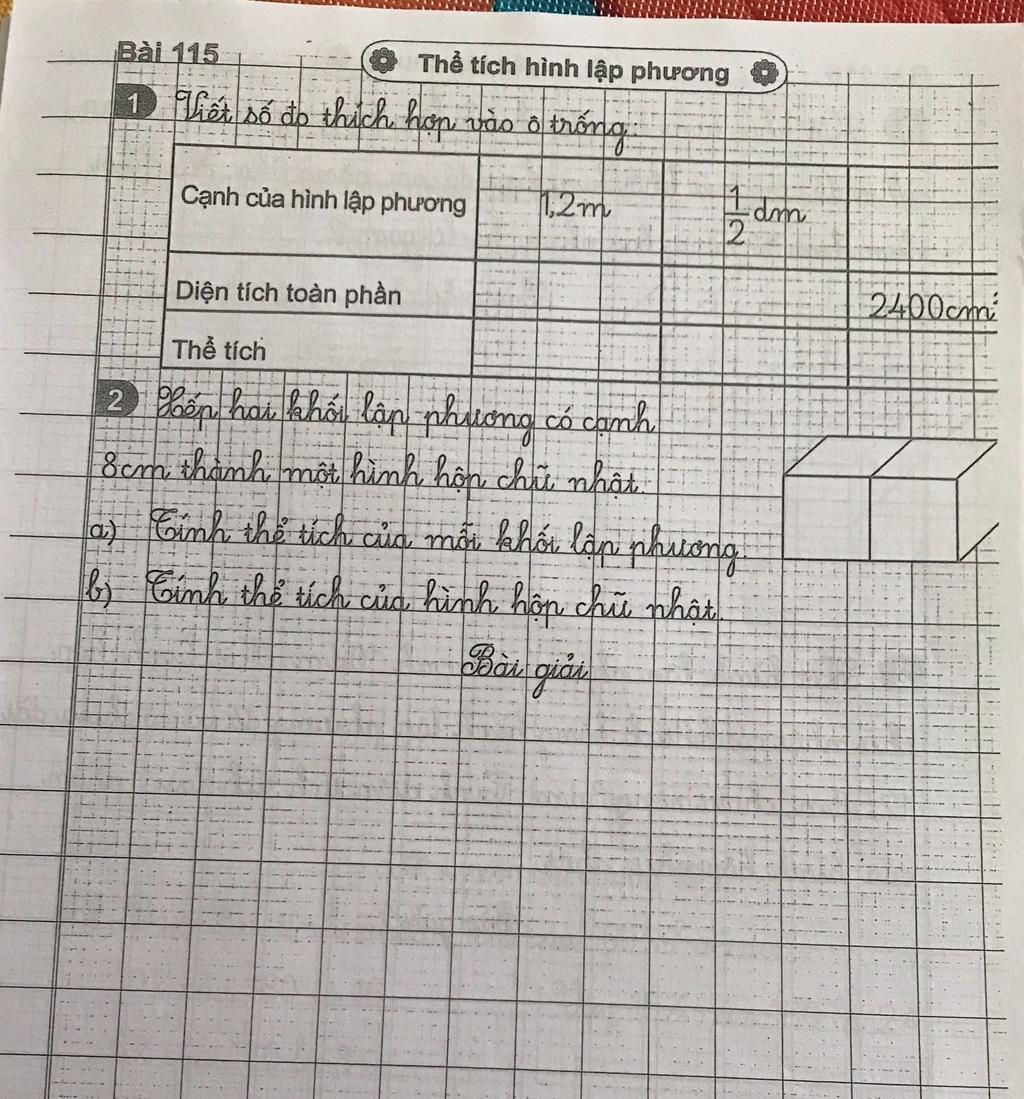 Bài 115
Thể tích hình lập phương
1 Viết số đo thích hợp vào ô trống:
Cạnh của hình lập phương 1,2m 1/2 dm
Diện tích toàn phần 2400cm²
Thể tích
2 Xếp hai khối lập phương có cạnh
8cm thành một hình hộp chữ nhật.
a) Tính thể tích của mỗi khối lập phương.
b) Tính thể tích của hình hộp chữ nhật.
Bài giải